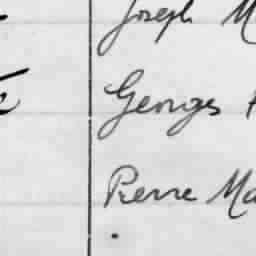 Joseph M
Georges
Pierre Ma